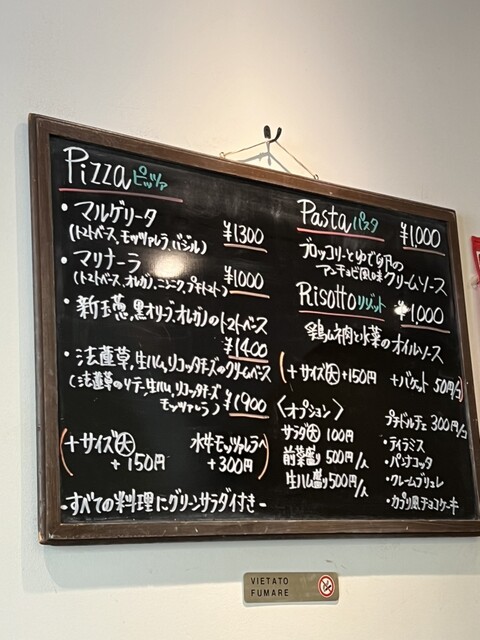 Pizza ピッツァ
・マルゲリータ
(トマトベース,モッツァレラ,バジル) ¥1300
・マリナーラ
(トマトベース,オレガノ,ニンニク,プチトマト) ¥1000
・新玉葱,黒オリーブ,オレガノのトマトベース
¥1400
・法蓮草,生ハム,リコッタチーズのクリームベース
(法蓮草のソテー,生ハム,リコッタチーズ
モッツァレラ) ¥1900
(+サイズ大 +150円
水牛モッツァレラへ +300円)
-すべての料理にグリーンサラダ付き-
Pasta パスタ ¥1,000
ブロッコリーとゆで卵の
アンチョビ風味クリームソース
Risotto リゾット ¥1,000
鶏ムネ肉と水菜のオイルソース
(+サイズ大+150円 +バケット 50円/コ)
〈オプション〉
サラダ大 100円
前菜盛り 500円/人
生ハム盛り 500円/人
プチドルチェ 300円/コ
・ティラミス
・パンナコッタ
・クレームブリュレ
・カプリ風チョコケーキ
VIETATO
FUMARE